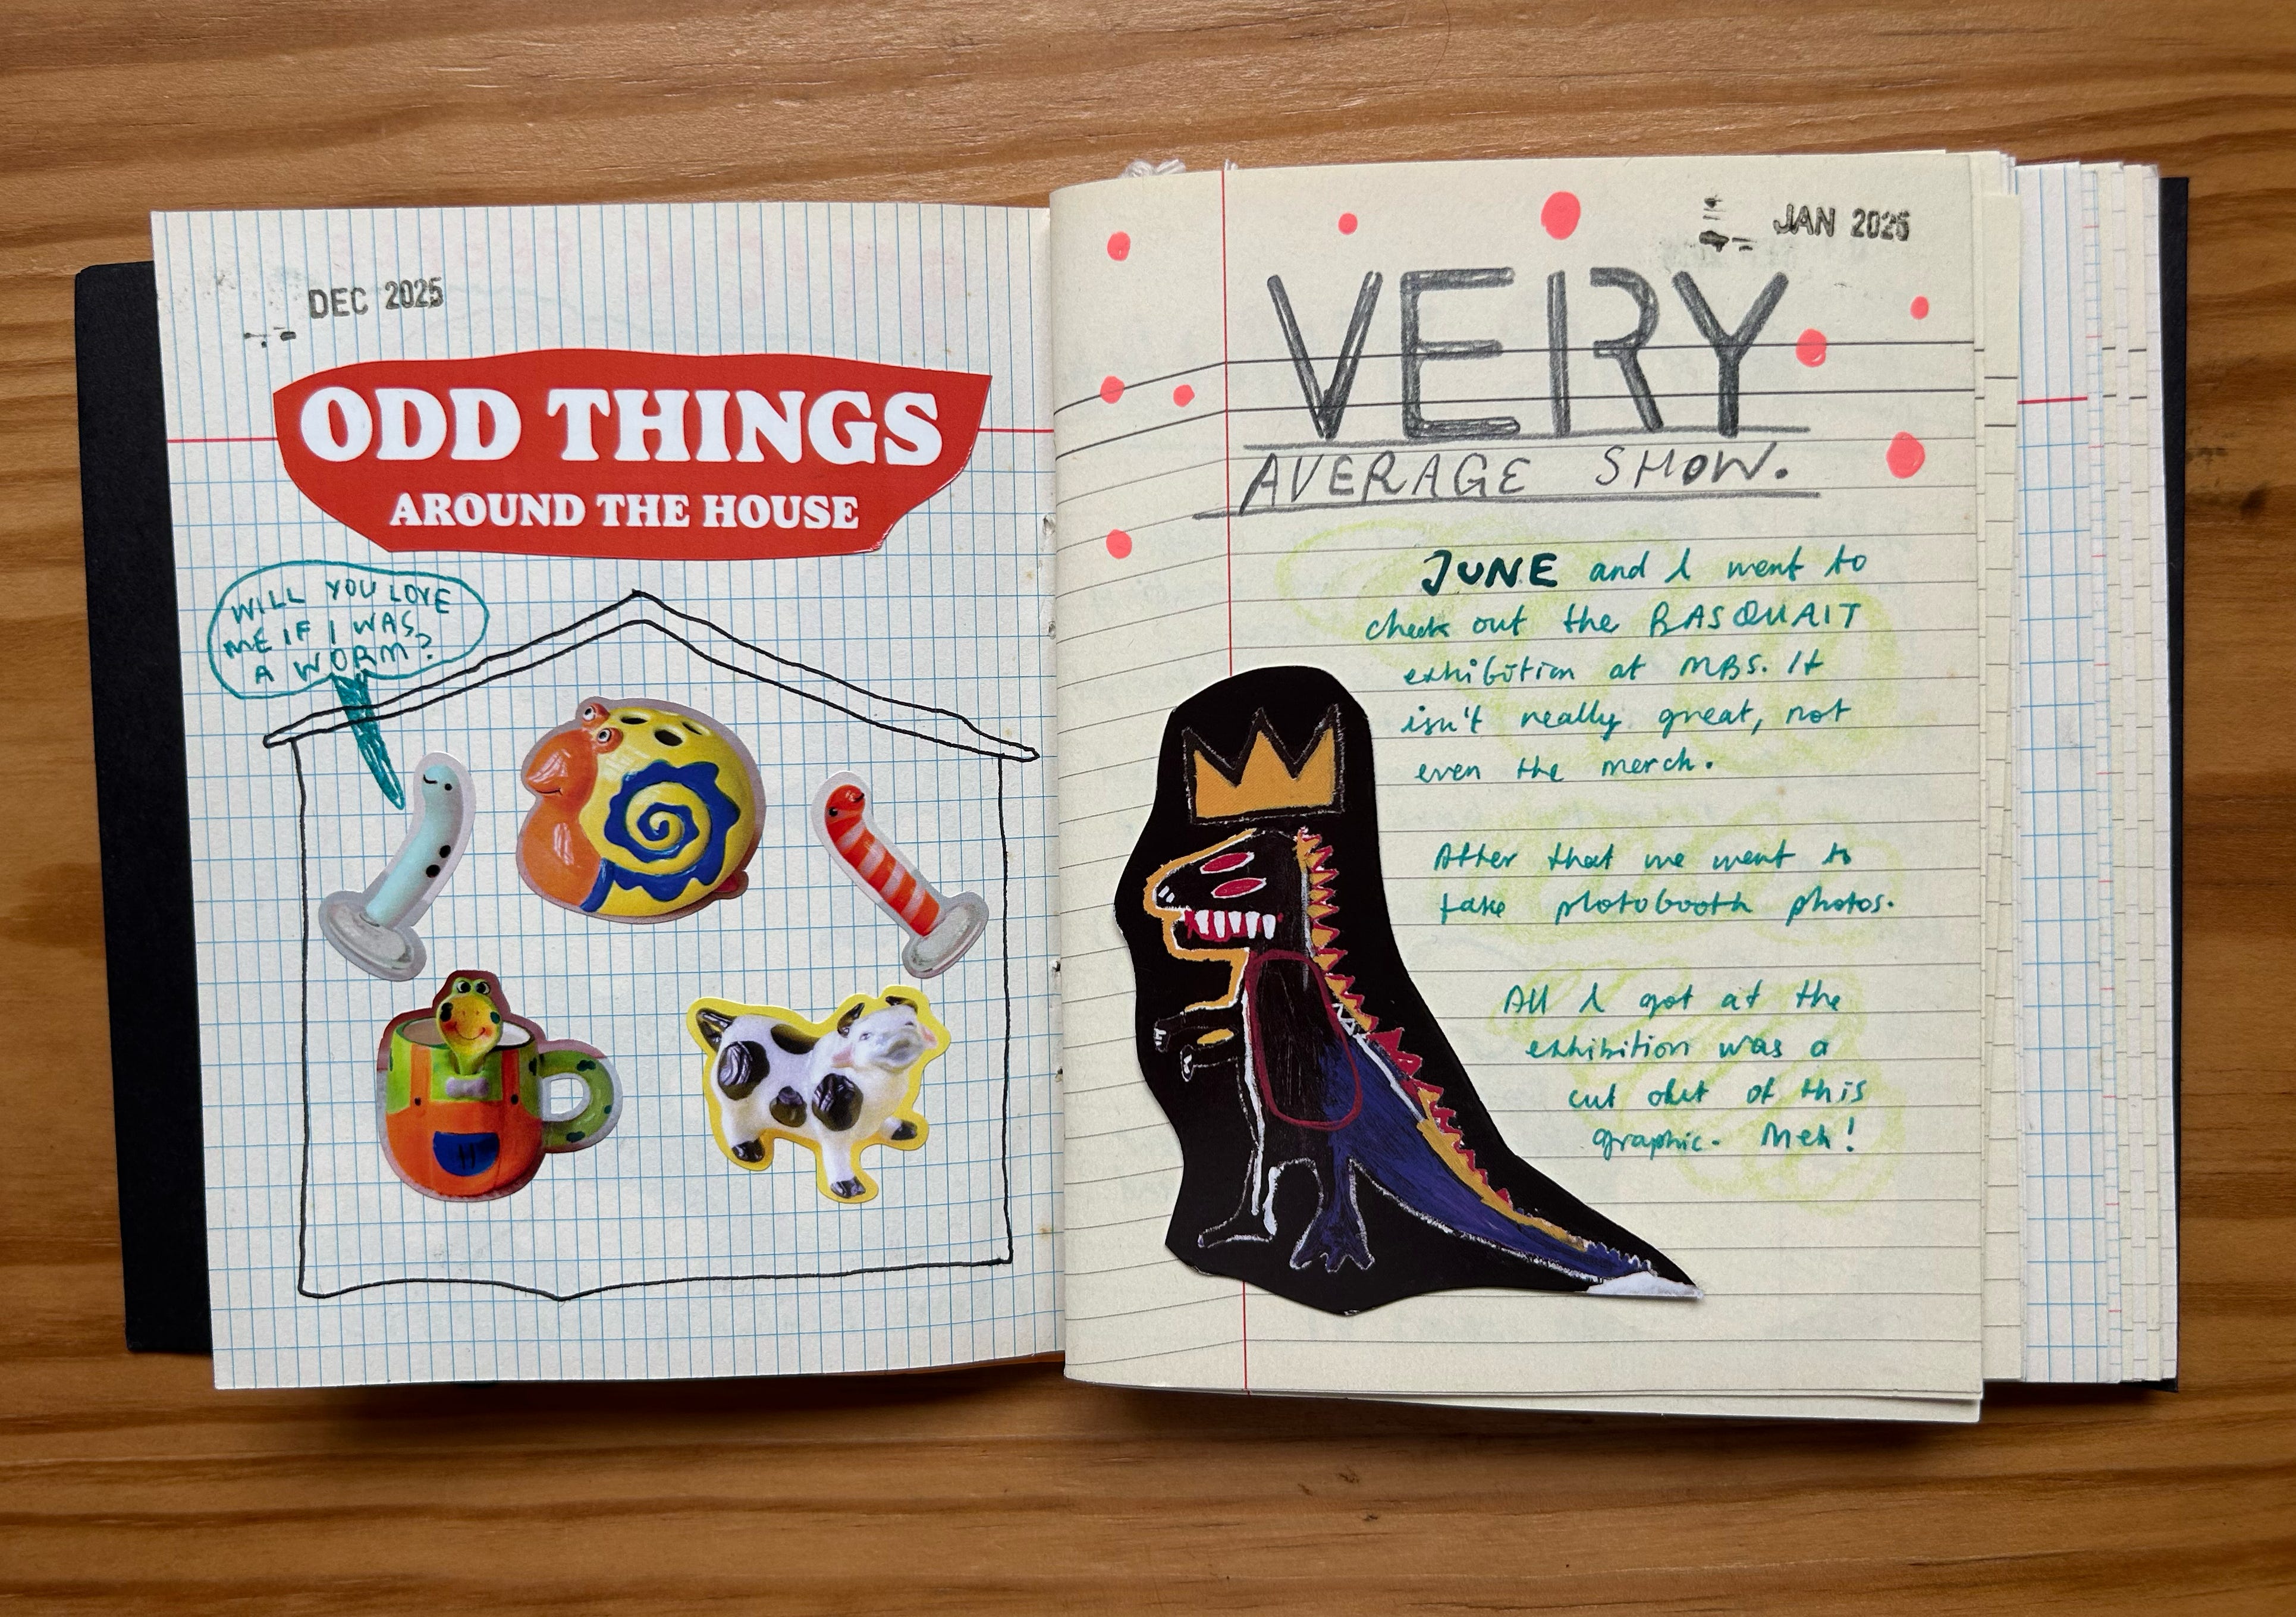 DEC 2025
ODD THINGS
AROUND THE HOUSE
WILL YOU LOVE
ME IF I WAS
A WORM?
JAN 2026
VERY
AVERAGE SHOW.
JUNE and I went to
check out the BASQUAIT
exhibition at MBS. It
isn't really great, not
even the merch.
After that we went to
take photobooth photos.
All I got at the
exhibition was a
cut out of this
graphic. Meh!